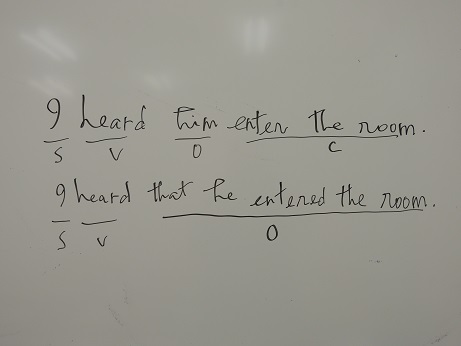 I heard him enter the room.
S V O C
I heard that he entered the room.
S V O